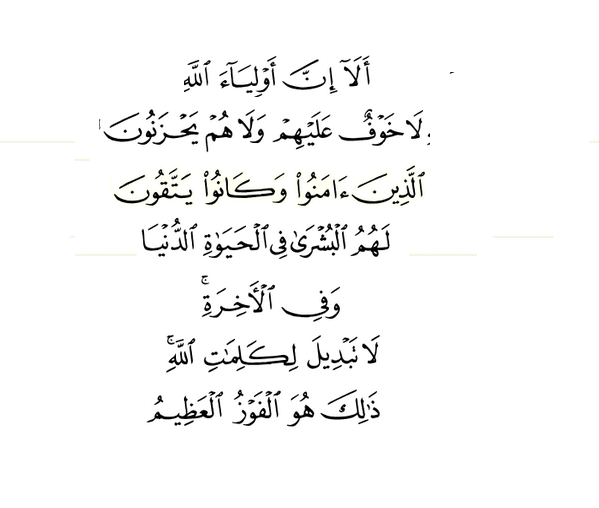 أَلَآ إِنَّ أَوْلِيَآءَ ٱللَّهِ
لَا خَوْفٌ عَلَيْهِمْ وَلَا هُمْ يَحْزَنُونَ
ٱلَّذِينَ ءَامَنُوا۟ وَكَانُوا۟ يَتَّقُونَ
لَهُمُ ٱلْبُشْرَىٰ فِى ٱلْحَيَوٰةِ ٱلدُّنْيَا
وَفِى ٱلْأَخِرَةِ ۚ
لَا تَبْدِيلَ لِكَلِمَٰتِ ٱللَّهِ ۚ
ذَٰلِكَ هُوَ ٱلْفَوْزُ ٱلْعَظِيمُ